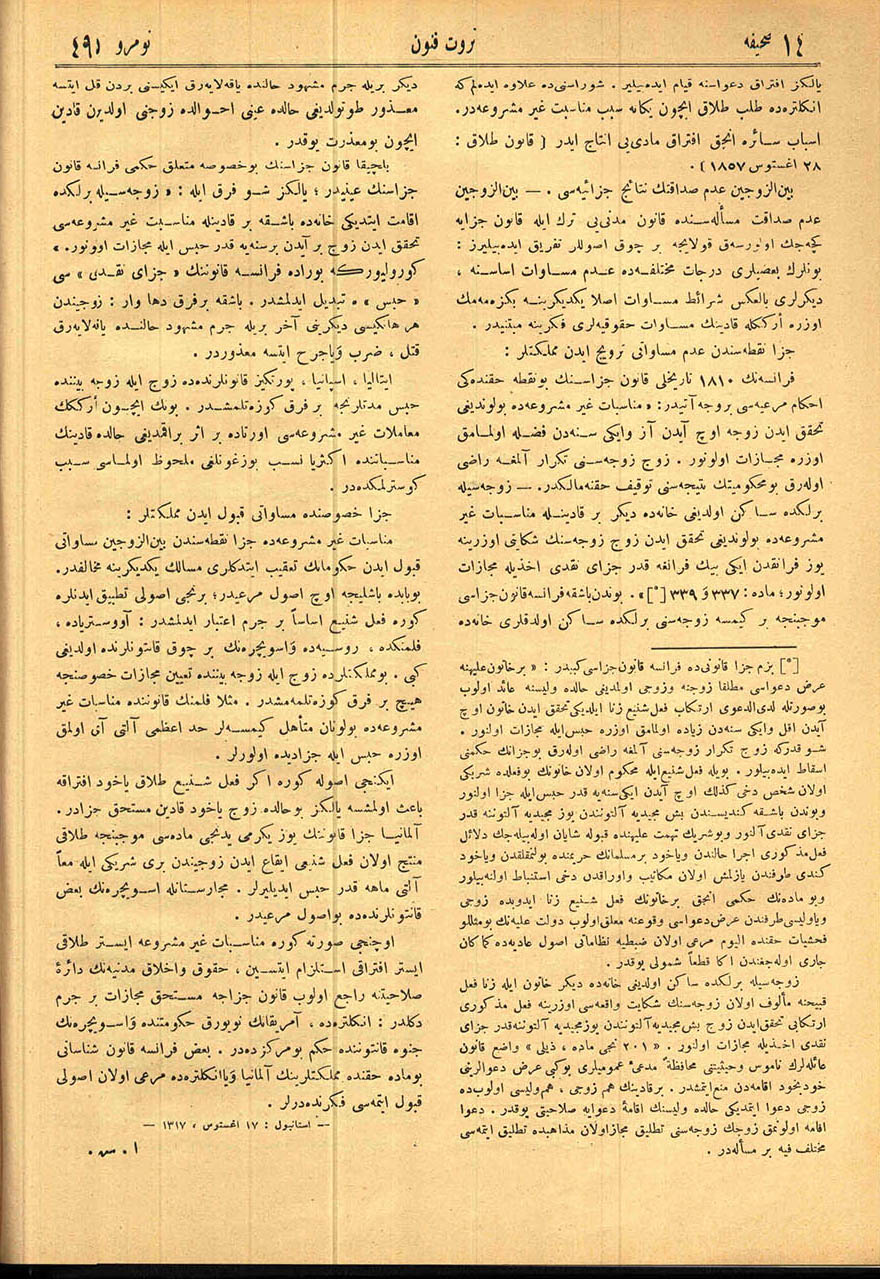 ١٤ صحيفه
ثروت فنون
نومرو ٤٩١
يالكز افتراق دعواسنه قيام ايده‌بيلير . شوراسنى‌ده علاوه ايده‌لم‌كه
انكلتره‌ده طلب طلاق ايچون يكانه سبب مناسبت غير مشروعه‌در.
اسباب سائره انجق افتراق مادى‌يى انتاج ايدر ( قانون طلاق :
٢٨ اغستوس ١٨٥٧ ) ٠
بين‌الزوجين عدم صداقتك نتائج جزائيه‌سى . — بين‌الزوجين
عدم صداقت مسأله‌سنده قانون مدنى‌يى ترك ايله قانون جزايه
كچه‌جك اولورسه‌ق قولايجه بر چوق اصوللر تفريق ايده‌بيليرز :
بونلرك بعضيلرى درجات مختلفه‌ده عدم مساوات اساسنه ،
ديكرلرى بالعكس شرائط مساوات اصلا يكديكرينه بكزه‌مه‌مك
اوزره أرككله قادينك مساوات حقوقيه‌لرى فكرينه مبتنيدر .
جزا نقطه‌سندن عدم مساواتى ترويج ايدن مملكتلر :
فرانسه‌نك ١٨١٠ تاريخلى قانون جزاسنك بونقطه حقنده‌كى
احكام مرعيه‌سى بروجه آتيدر : « مناسبات غير مشروعه‌ده بولونديغى
تحقق ايدن زوجه اوچ آيدن آز وايكى سنه‌دن فضله اولمامق
اوزره مجازات اولونور . زوج زوجه‌سنى تكرار آلمغه راضى
اوله‌رق بومحكوميتك نتيجه‌سنى توقيف حقنه مالكدر. — زوجه‌سيله
برلكده ساكن اولديغى خانه‌ده ديكر بر قادينله مناسبات غير
مشروعه‌ده بولونديغى تحقق ايدن زوج زوجه‌سنك شكاتى اوزرينه
يوز فرانقدن ايكى بيك فرانغه قدر جزاى نقدى اخذيله مجازات
اولونور؛ ماده : ٣٣٧ و ٣٣٩ [*]» . بوندن باشقه فرانسه قانون جزاسى
موجبنجه بر كيمسه زوجه‌سنى برلكده ساكن اولدقلرى خانه‌ده
[*] بزم جزا قانونى‌ده فرانسه قانون جزاسى كبيدر : « برخاتون عليهنه
عرض دعواسى مطلقا زوجنه وزوجى اولمديغى حالده وليسنه عائد اولوب
بوصورتله لدى‌الدعوى ارتكاب فعل شنيع زنا ايلديكى تحقق ايدن خاتون اوچ
آيدن اقل وايكى سنه‌دن زياده اولمامق اوزره حبس ايله مجازات اولنور .
شو قدركه زوج تكرار زوجه‌سنى آلمغه راضى اوله‌رق بوجزانك حكمنى
اسقاط ايده‌بيلور . بويله فعل شنيع ايله محكوم اولان خاتونك بوفعلده شريكى
اولان شخص دخى كذلك اوچ آيدن ايكى سنه‌يه قدر حبس ايله جزا اولنور
وبوندن باشقه كنديسندن بش مجيديه آلتونندن يوز مجيديه آلتوننه قدر
جزاى نقدى آلنور وبوشريك تهمت عليهنده قبوله شايان اوله‌بيله‌جك دلائل
فعل مذكورى اجرا حالندن وياخود برمسلمانك حريمنده بولنمقلقدن وياخود
كندى طرفندن يازلمش اولان مكاتيب واوراقدن دخى استنباط اولنه‌بيلور
وبو ماده‌نك حكمى انجق برخاتونك فعل شنيع زنا ايدوبده زوجى
وياوليسى طرفندن عرض دعواسى وقوعنه معلق اولوب دولت عليه‌نك بومثللو
فحشيات حقنده اليوم مرعى اولان ضبطيه نظاماتى اصول عاديه‌ده كماكان
جارى اوله‌جغندن اكا قطعاً شمولى يوقدر .
زوجه‌سيله برلكده ساكن اولديغى خانه‌ده ديكر خاتون ايله زنا فعل
قبيحنه مألوف اولان زوجه‌سنك شكايت واقعه‌سى اوزرينه فعل مذكورى
ارتكابى تحقق ايدن زوج بش مجيديه آلتونندن يوز مجيديه آلتوننه قدر جزاى
نقدى اخذيله مجازات اولنور . « ٢٠١ نجى ماده ، ذيلى » واضع قانون
عائله‌لرك ناموس وحيثيتنى محافظةً مدعئ عموميلرى بوكبى عرض دعوالرينى
خودبخود اقامه‌دن منع ايتمشدر . برقادينك هم زوجى ، هم وليسى اولوب‌ده
زوجى دعوا ايتمديكى حالده وليسنك اقامۀ دعوايه صلاحيتى يوقدر . دعوا
اقامه اولونمق زوجك زوجه‌سنى تطليق مجاز اولان مذاهبده تطليق ايتمه‌سى
مختلف فيه بر مسأله‌در .
ديكر بريله جرم مشهود حالنده ياقه‌لايه‌رق ايكيسنى بردن قتل ايتسه
معذور طوتولديغى حالده عينى احوالده زوجنى اولديرن قادين
ايچون بومعذرت يوقدر .
بلچيقا قانون جزاسنك بوخصوصه متعلق حكمى فرانسه قانون
جزاسنك عينيدر ؛ يالكز شو فرق ايله : « زوجه‌سيله برلكده
اقامت ايتديكى خانه‌ده باشقه بر قادينله مناسبت غير مشروعه‌سى
تحقق ايدن زوج بر آيدن برسنه‌يه قدر حبس ايله مجازات اوونور. »
كورولييوركه بوراده فرانسه قانوننك « جزاى نقدى » سى
« حبس » ه تبديل ايدلمشدر . باشقه برفرق دها وار : زوجيندن
هر هانكيسى ديكرينى آخر بريله جرم مشهود حالنده ياقه‌لايه‌رق
قتل ، ضرب وياجرح ايتسه معذوردر .
ايتاليا ، اسپانيا ، پورتكيز قانونلرنده‌ده زوج ايله زوجه بيننده
حبس مدتلرنجه بر فرق كوزه‌تلمشدر . بونك ايچون أرككك
معاملات غير مشروعه‌سى اورتاده بر اثر براقمديغى حالده قادينك
مناسباتنده اكثريا نسب بوزغونلغى ملحوظ اولماسى سبب
كوسترلمكده‌در .
جزا خصوصنده مساواتى قبول ايدن مملكتلر :
مناسبات غير مشروعه‌ده جزا نقطه‌سندن بين‌الزوجين مساواتى
قبول ايدن حكوماتك تعقيب ايتدكلرى مسالك يكديكرينه مخالفدر.
بوبابده باشليجه اوچ اصول مرعيدر؛ برنجى اصولى تطبيق ايدنلره
كوره فعل شنيع اساساً بر جرم اعتبار ايدلمشدر : آووسترياده ،
فلمنكده ، روسيه‌ده واسويچره‌نك بر چوق قانتونلرنده اولديغى
كبى . بومملكتلرده زوج ايله زوجه بيننده تعيين مجازات خصوصنجه
هيچ بر فرق كوزه‌تلمه‌مشدر . مثلا فلمنك قانوننده مناسبات غير
مشروعه‌ده بولونان متأهل كيمسه‌لر حد اعظمى آلتى آى اولمق
اوزره حبس ايله جزاديده اولورلر .
ايكنجى اصوله كوره اكر فعل شنيع طلاق ياخود افتراقه
باعث اولمشسه يالكز بوحالده زوج ياخود قادين مستحق جزادر .
آلمانيا جزا قانوننك يوز يكرمى يدنجى ماده‌سى موجبنجه طلاقى
منتج اولان فعل شنيعى ايقاع ايدن زوجيندن برى شريكى ايله معاً
آلتى ماهه قدر حبس ايديليرلر . مجارستانله اسويچره‌نك بعض
قانتونلرنده‌ده بواصول مرعيدر .
اوچنجى صورته كوره مناسبات غير مشروعه ايستر طلاقى
ايستر افتراقى استلزام ايتسين ، حقوق واخلاق مدنيه‌نك دائرۀ
صلاحيتنه راجع اولوب قانون جزاجه مستحق مجازات بر جرم
دكلدر : انكلتره‌ده ، آمريقانك نويورق حكومتنده واسويچره‌نك
جنوه قانتوننده حكم بومركزده‌در . بعض فرانسه قانون شناسانى
بوماده حقنده مملكتلرينك آلمانيا ويا انكلتره‌ده مرعى اولان اصولى
قبول ايتمه‌سى فكرنده‌درلر .
— استانبول : ١٧ اغستوس ، ١٣١٧ —
ا . س .